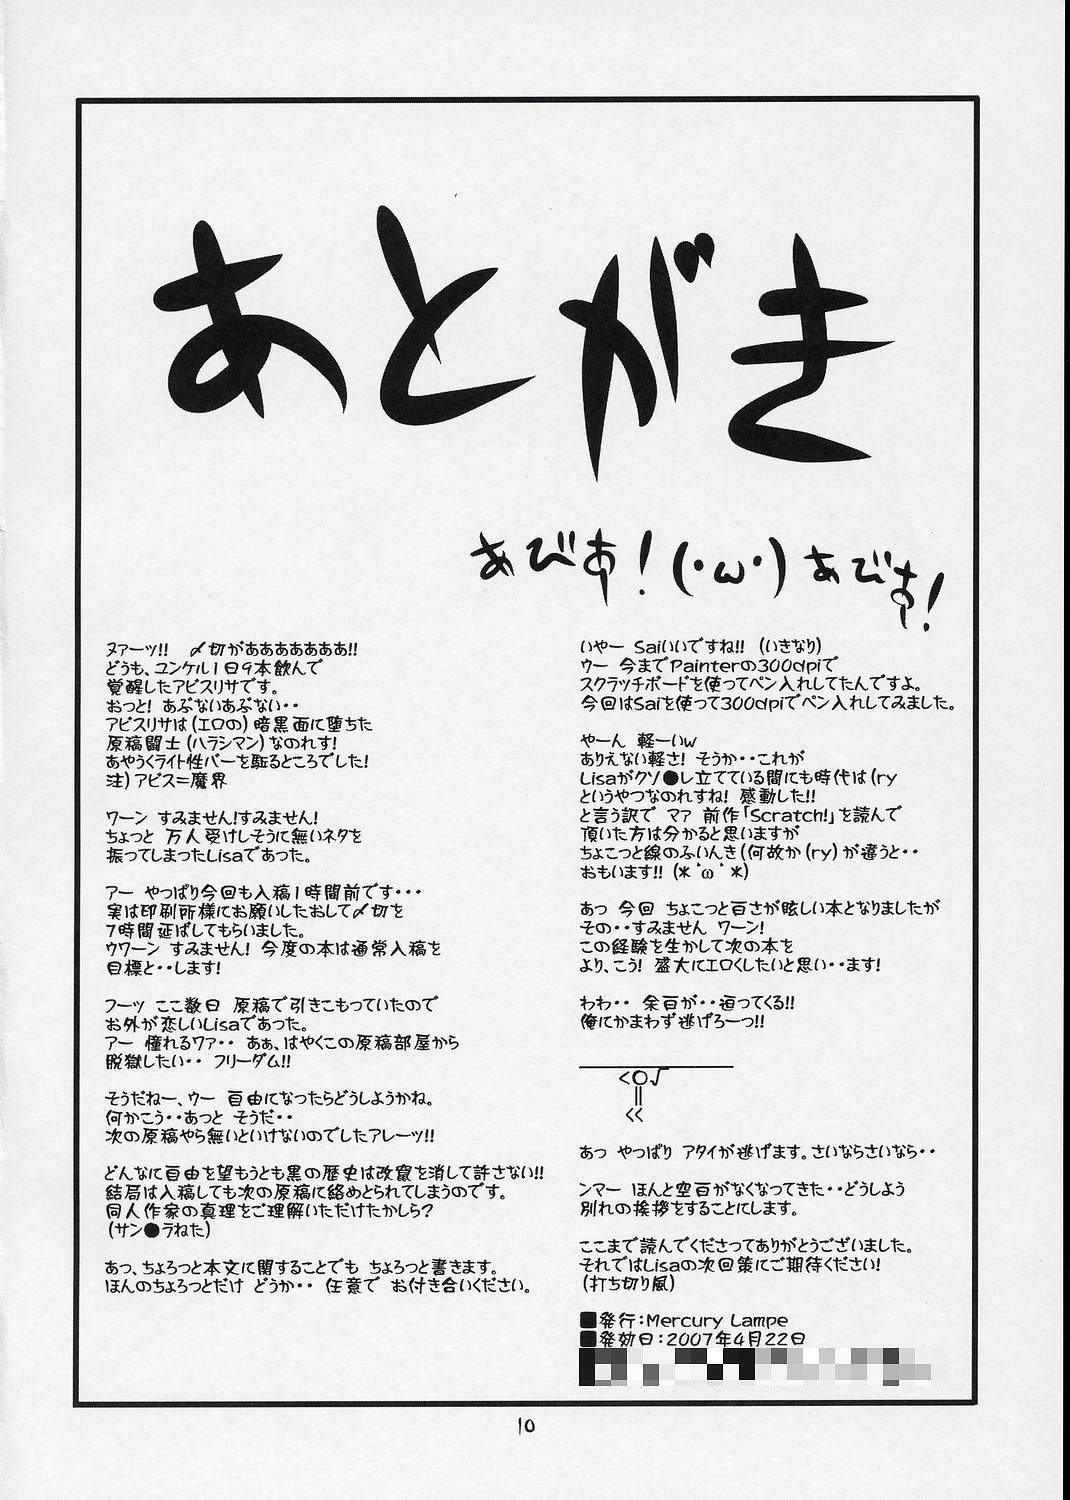 あとがき
あびす!(・ω・)あびす!
ヌァーッ!! 〆切がああああああ!!
どうも、ユンケル1日9本飲んで
覚醒したアビスリサです。
おっと! あぶないあぶない・・
アビスリサは(エロの)暗黒面に堕ちた
原稿闘士(ハラシマン)なのれす!
あやうくライト性バーを駈るところでした!
注)アビス=魔界
ワーン すみません!すみません!
ちょっと 万人受けしそうに無いネタを
振ってしまったLisaであった。
アー やっぱり今回も入稿1時間前です・・・
実は印刷所様にお願いしたおして〆切を
7時間延ばしてもらいました。
ウワーン すみません! 今度の本は通常入稿を
目標と・・します!
フーッ ここ数日 原稿で引きこもっていたので
お外が恋しいLisaであった。
アー 憧れるワァ・・ あぁ、はやくこの原稿部屋から
脱獄したい・・ フリーダム!!
そうだねー、ウー 自由になったらどうしようかね。
何かこう・・あっと そうだ・・
次の原稿やら無いといけないのでしたアレーッ!!
どんなに自由を望もうとも黒の歴史は改竄を消して許さない!!
結局は入稿しても次の原稿に絡めとられてしまうのです。
同人作家の真理をご理解いただけたかしら?
(サン●ラねた)
あっ、ちょろっと本文に関することでも ちょろっと書きます。
ほんのちょろっとだけ どうか・・ 任意で お付き合いください。
いやー Saiいいですね!! (いきなり)
ウー 今までPainterの300dpiで
スクラッチボードを使ってペン入れしてたんですよ。
今回はSaiを使って300dpiでペン入れしてみました。
やーん 軽ーいw
ありえない軽さ! そうか・・これが
Lisaがクソ●レ立てている間にも時代は(ry
というやつなのれすね! 感動した!!
と言う訳で マァ 前作「Scratch!」を読んで
頂いた方は分かると思いますが
ちょこっと線のふいんき(何故か(ry)が違うと・・
おもいます!! (*´ω｀*)
あっ 今回 ちょこっと白さが眩しい本となりましたが
その・・すみません ワーン!
この経験を生かして次の本を
より、こう! 盛大にエロくしたいと思い・・ます!
わわ・・ 余白が・・迫ってくる!!
俺にかまわず逃げろーっ!!
<○√
||
<<
あっ やっぱり アタイが逃げます。さいならさいなら・・
ンマー ほんと空白がなくなってきた・・どうしよう
別れの挨拶をすることにします。
ここまで読んでくださってありがとうございました。
それではLisaの次回策にご期待ください!
(打ち切り風)
■発行:Mercury Lampe
■発効日:2007年4月22日
10